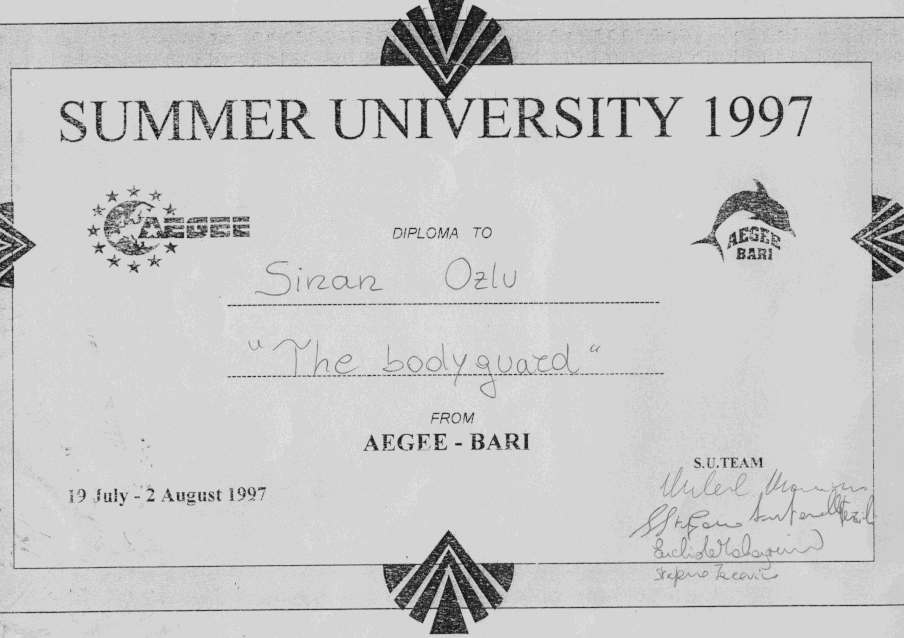 SUMMER UNIVERSITY 1997
AEGEE
AEGEE
BARI
DIPLOMA TO
Sinan Ozlu
"The bodyguard"
FROM
AEGEE - BARI
19 July - 2 August 1997
S.U.TEAM